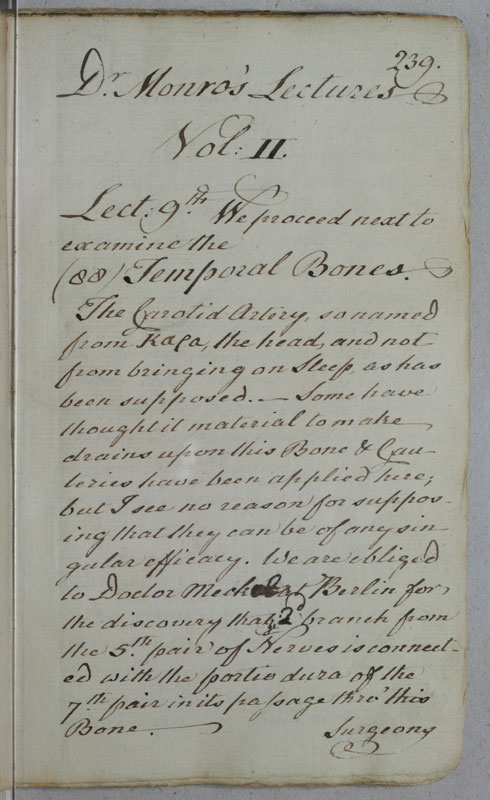 239.
Dr. Monro's Lectures
Vol: II.
Lect: 9th. We proceed next to
examine the
(88) Temporal Bones.
The Carotid Artery, so named
from Καρα, the head, and not
from bringing on Sleep, as has
been supposed. — Some have
thought it material to make
drains upon this Bone & Cau-
teries have been applied here;
but I see no reason for suppos-
ing that they can be of any sin-
gular efficacy. We are obliged
to Doctor Meckel at Berlin for
the discovery that ye 2d branch from
the 5th. pair of Nerves is connect-
ed with the portio dura of the
7th pair in its passage thro' this
Bone.
Surgeons